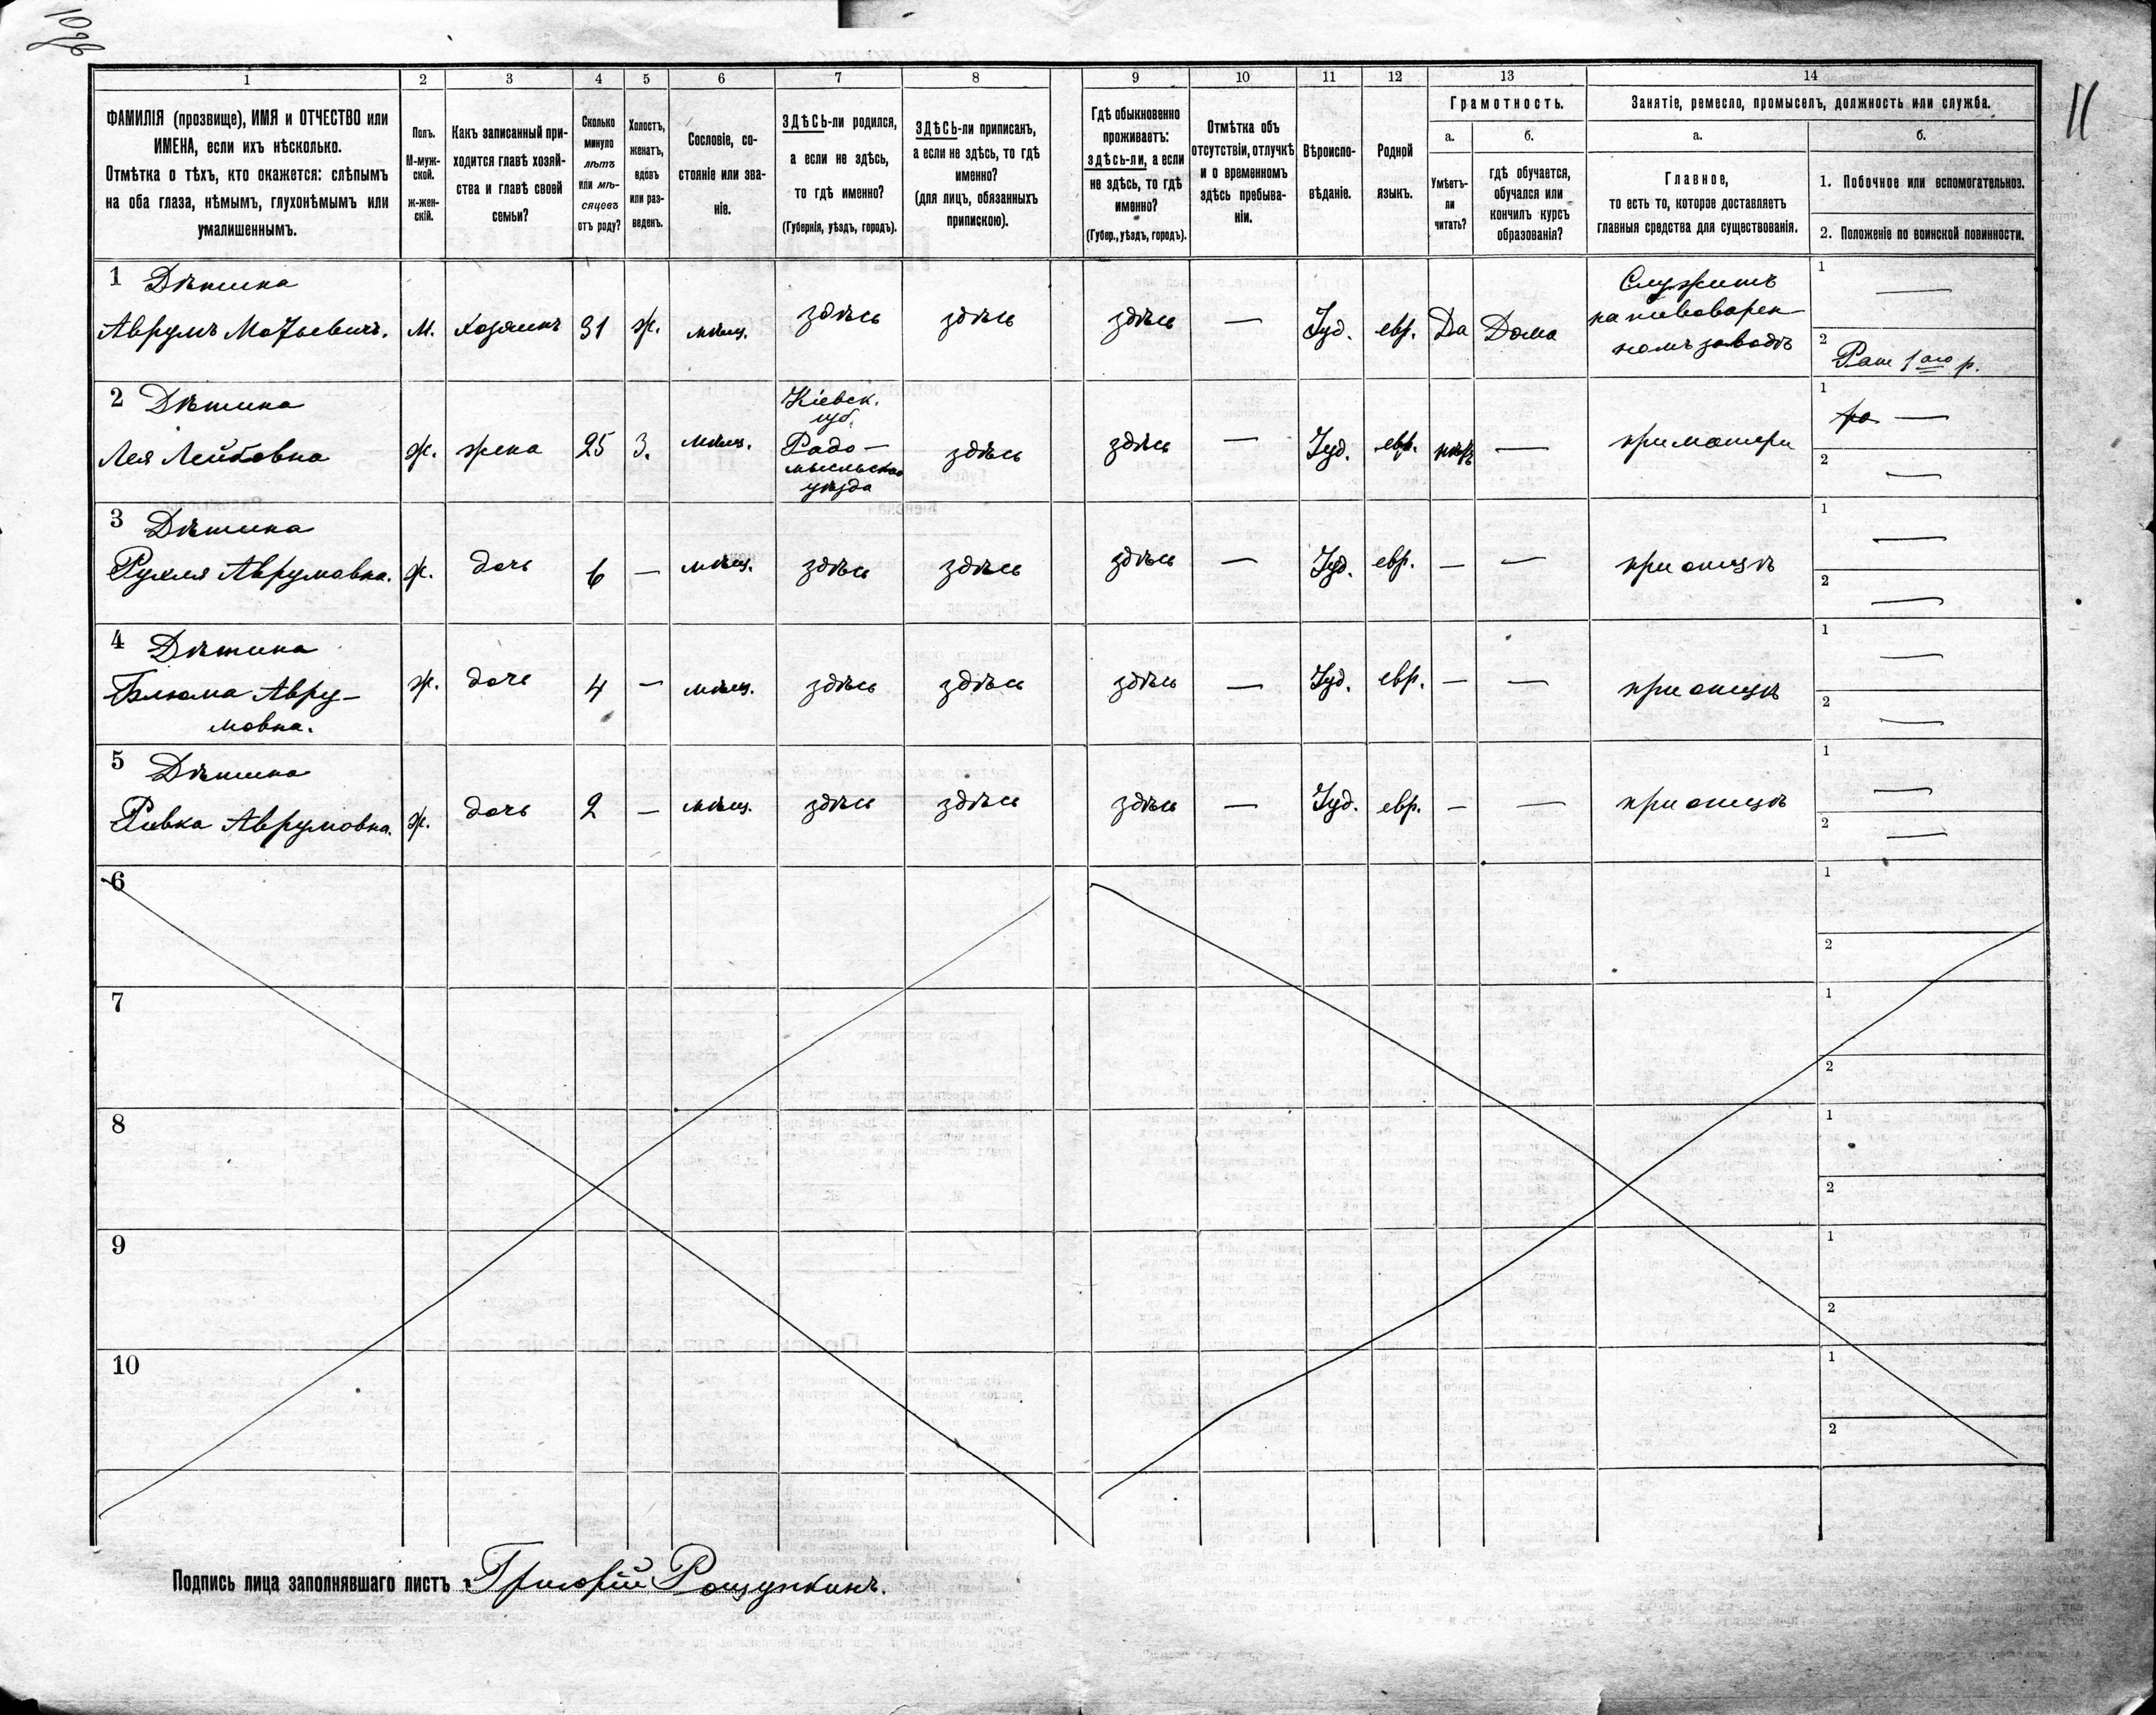 1026
11
1 2 3 4 5 6 7 8 9 10 11 12 13 14
ФАМИЛІЯ (прозвище), ИМЯ и ОТЧЕСТВО или
ИМЕНА, если ихъ нѣсколько.
Отмѣтка о тѣхъ, кто окажется: слѣпымъ
на оба глаза, нѣмымъ, глухонѣмымъ или
умалишеннымъ.
Полъ.
М-муж-
ской.
ж-жен-
скій.
Какъ записанный при-
ходится главѣ хозяй-
ства и главѣ своей
семьи?
Сколько
минуло
лѣтъ
или мѣ-
сяцевъ
отъ роду?
Холостъ,
женатъ,
вдовъ
или раз-
веденъ.
Сословіе, со-
стояніе или зва-
ніе.
ЗДѢСЬ-ли родился,
а если не здѣсь,
то гдѣ именно?
(Губернія, уѣздъ, городъ).
ЗДѢСЬ-ли приписанъ,
а если не здѣсь, то гдѣ
именно?
(для лицъ, обязанныхъ
припискою).
Гдѣ обыкновенно
проживаетъ:
здѣсь-ли, а если
не здѣсь, то гдѣ
именно?
(Губер., уѣздъ, городъ).
Отмѣтка объ
отсутствіи, отлучкѣ
и о временномъ
здѣсь пребыва-
ніи.
Вѣроиспо-
вѣданіе.
Родной
языкъ.
Грамотность.
а.
Умѣетъ-
ли
читать?
б.
гдѣ обучается,
обучался или
кончилъ курсъ
образованія?
Занятіе, ремесло, промыселъ, должность или служба.
а.
Главное,
то есть то, которое доставляетъ
главныя средства для существованія.
б.
1. Побочное или вспомогательное.
2. Положеніе по воинской повинности.
1 Дѣтина
Аврумъ Мотьевичъ. М. хозяинъ 31 ж. мѣщ. здѣсь здѣсь здѣсь — Іуд. евр. Да Дома
Служитъ
на пивоварен-
номъ заводѣ
1 —
2 Рат. 1ого р.
2 Дѣтина
Лея Лейбовна ж. жена 25 З. мѣщ.
Кіевск.
губ.
Радо-
мысльскаго
уѣзда
здѣсь здѣсь — Іуд. евр. нѣтъ — при матери
1 —
2 —
3 Дѣтина
Рухля Аврумовна. ж. дочь 6 — мѣщ. здѣсь здѣсь здѣсь — Іуд. евр. — — при отцѣ
1 —
2 —
4 Дѣтина
Блюма Авру-
мовна.
ж. дочь 4 — мѣщ. здѣсь здѣсь здѣсь — Іуд. евр. — — при отцѣ
1 —
2 —
5 Дѣтина
Ривка Аврумовна. ж. дочь 2 — мѣщ. здѣсь здѣсь здѣсь — Іуд. евр. — — при отцѣ
1 —
2 —
6
1
2
7
1
2
8
1
2
9
1
2
10
1
2
Подпись лица заполнявшаго листъ Григорій Рощупкинъ.